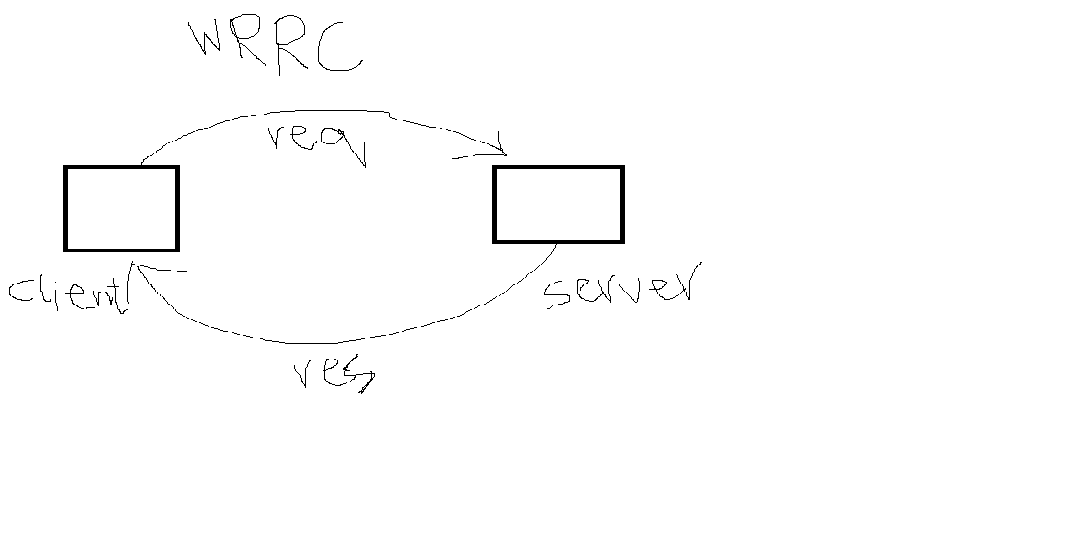 WRRC
req
client
server
res